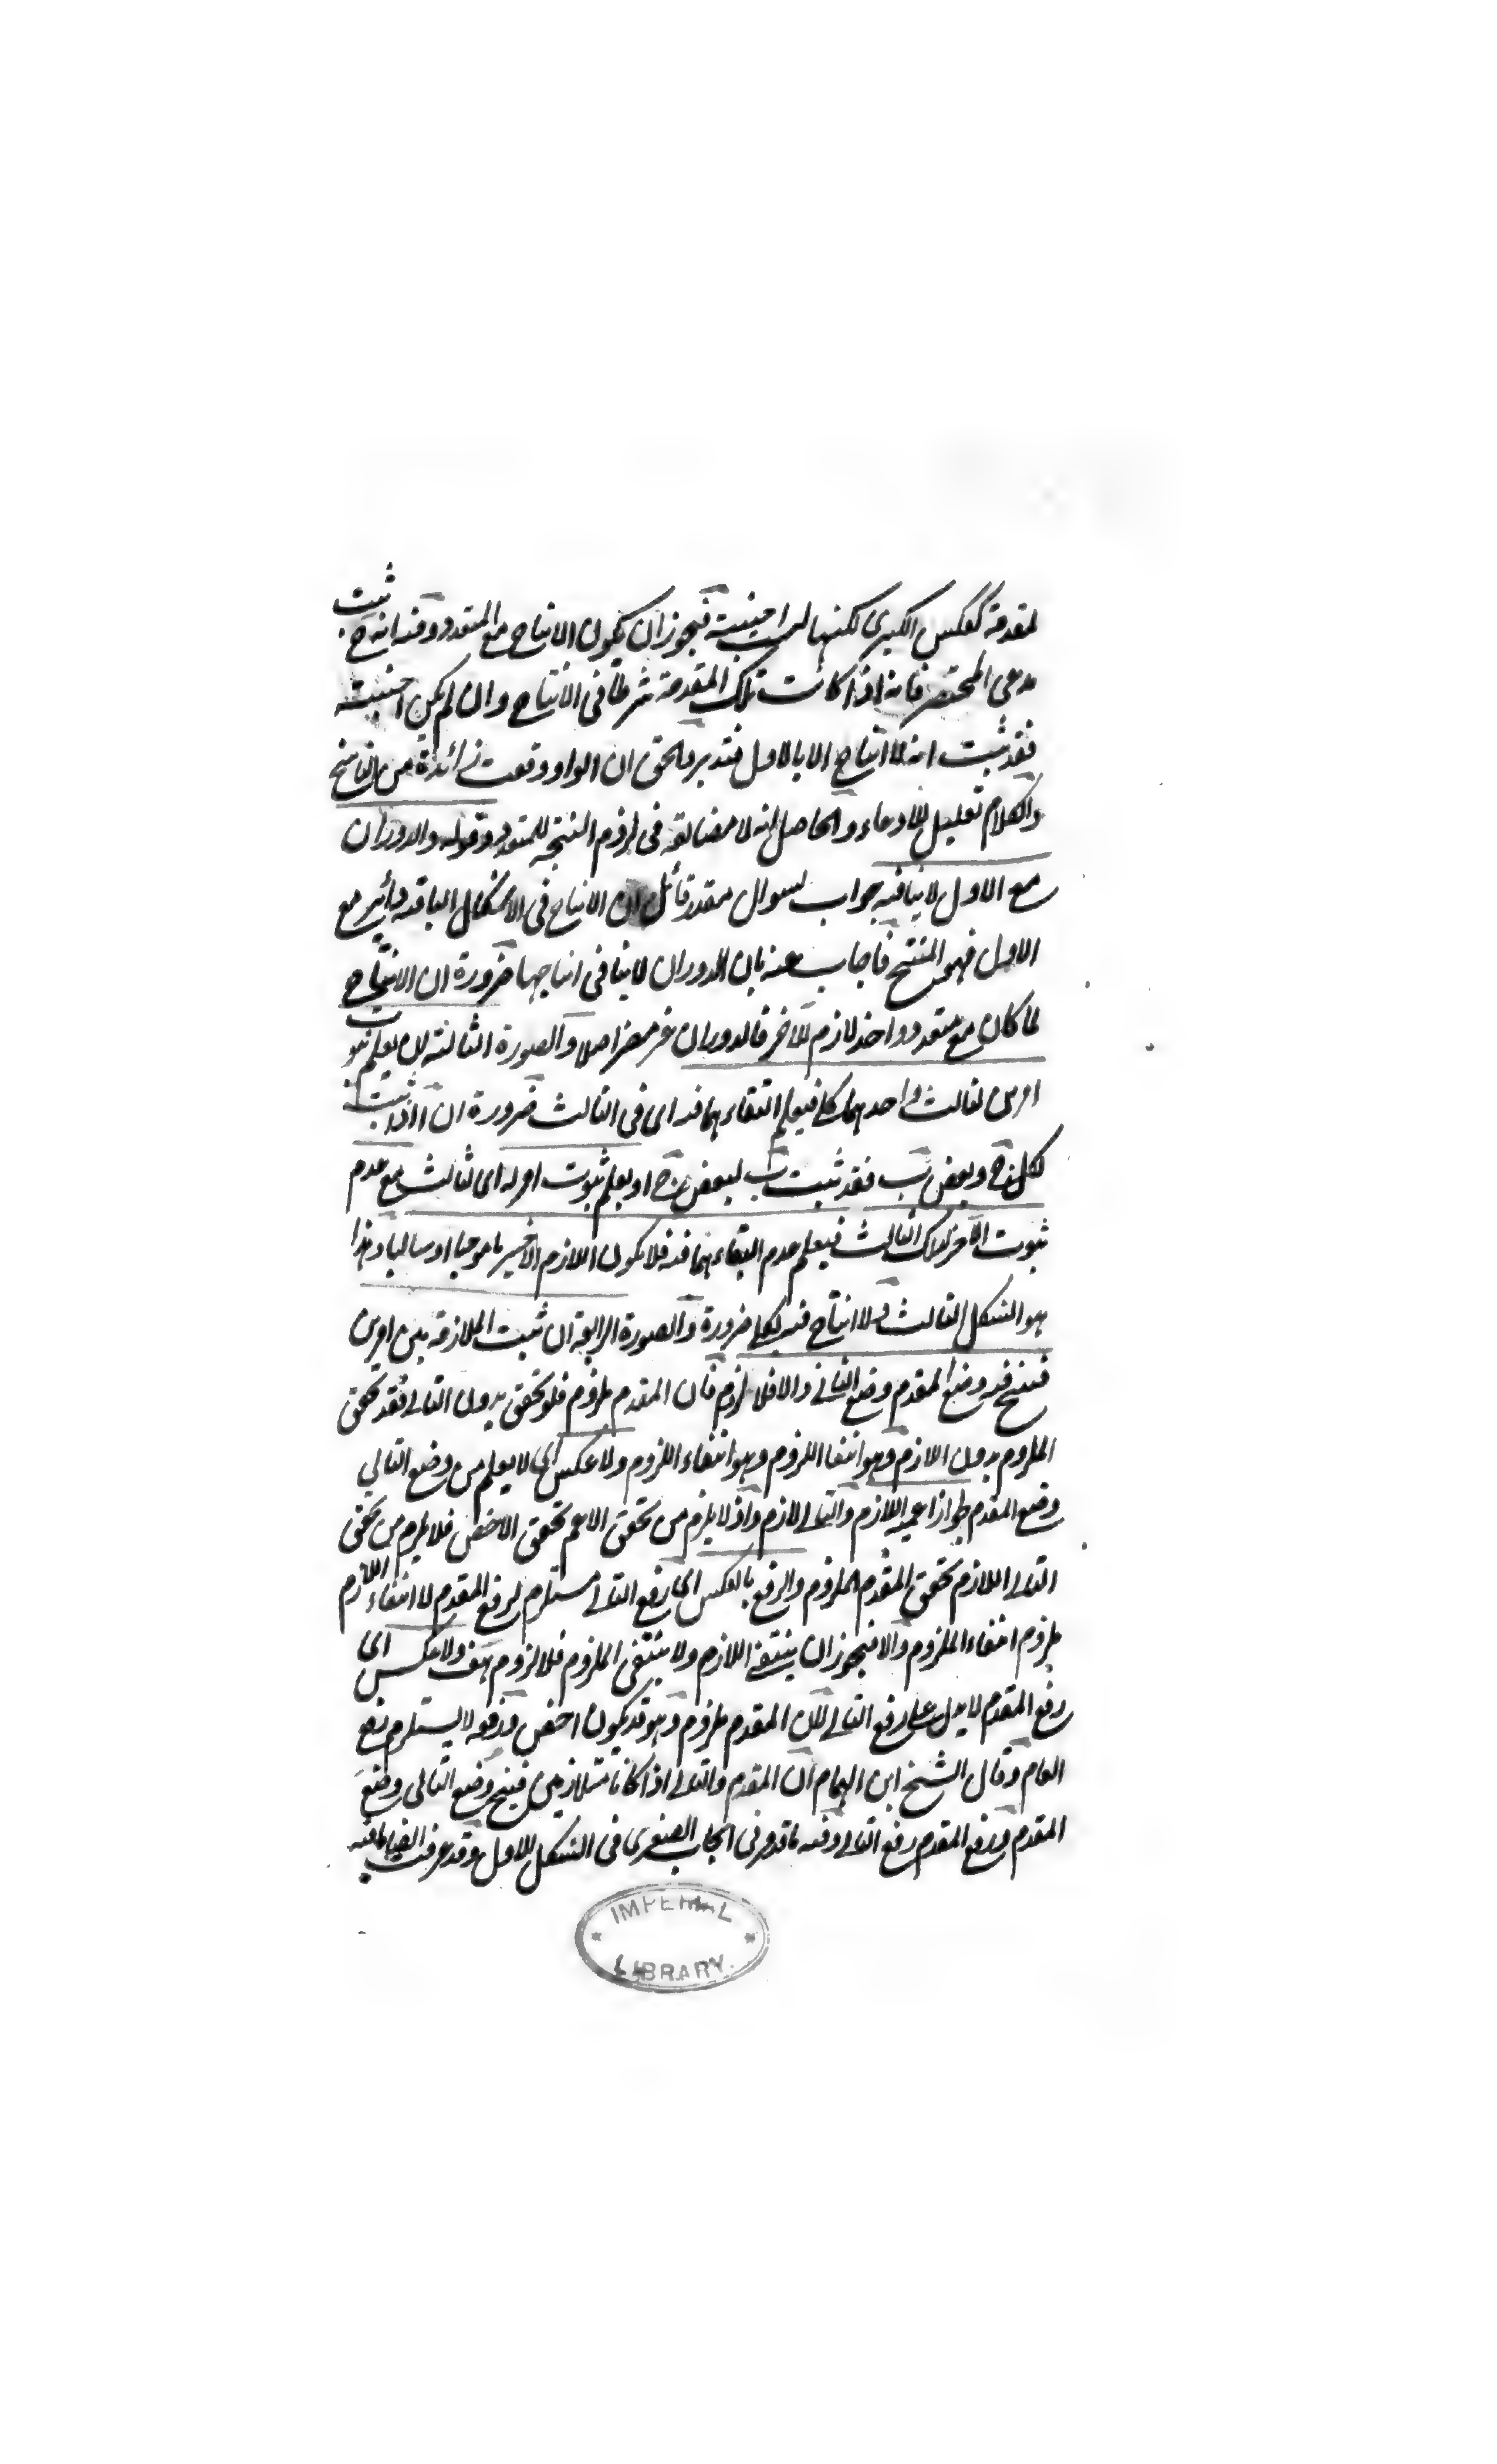 لمقدمة كعكس الكبرى لكنها ليست اجنبية فيجوز ان يكون الانتاج مع المتعدد وفيه انه ح ثبت
مدعى المختصر فانه اذا كانت تلك المقدمة شرطا فى الانتاج وان لم يكن اجنبية
فقد ثبت انه لا انتاج الا بالاول فتدبر والحق ان الواو وقعت زائدة من الناسخ
والكلام تعليل للادعاء والحاصل انه لا مضايقة فى لزوم النتيجة للمتعدد وقوله والدوران
مع الاول لا ينافيه جواب لسوال مقدر قائل ان الانتاج فى الاشكال الباقية دائر مع
الاول فهو المنتج فاجاب عنه بان الدوران لا ينافى انتاجها ضرورة ان الانتاج
لما كان مع متعدد واحد لازم للاخر فالدوران غير مضر اصلا والصورة الثالثة ان يعلم ثبوت
امرين لثالث واحدهما كلى فيعلم التقاءهما فيه اى فى الثالث ضرورة ان ا اذا ثبت
لكل ج وبعض ب فقد ثبت ب لبعض ج او يعلم ثبوت امر له اى ثالث مع عدم
ثبوت الاخر لذلك الثالث فيعلم عدم التقاءهما فيه فلا يكون اللازم الا جزئيا موجبا او سالبا وهذا
هو الشكل الثالث ولا انتاج فيه لكلى ضرورة والصورة الرابعة ان ثبت الملازمة بين امرين
فينتج فيه وضع المقدم وضع التالى والا فلا لزوم فان المقدم ملزوم فلو تحقق بدون التالى فقد تحقق
الملزوم بدون اللازم وهو انتفا اللزوم وهو انتفاء اللزوم ولا عكس اى لا يعلم من وضع التالي
وضع المقدم لجواز اعمية اللازم والتالى لازم واذ لا يلزم من تحقق الاعم تحقق الاخص فلا يلزم من تحقق
التالى اللازم تحقق المقدم الملزوم والرفع بالعكس اى رفع التالى مستلزم لرفع المقدم لا انتفاء اللازم
ملزوم انتفاء الملزوم والا فيجوز ان ينتفى اللازم ولا ينتفى الملزوم فلا لزوم هف ولا عكس اى
رفع المقدم لا يدل على رفع التالى لان المقدم ملزوم وهو قد يكون اخص ورفعه لا يستلزم رفع
العام وقال الشيخ ابن الهمام ان المقدم والتالى اذا كانا متلازمين فينتج وضع التالى وضع
المقدم ورفع المقدم رفع التالى وفيه ما قد مر فى ايجاب الصغرى فى الشكل الاول وقد عرفت ايضا ما فيه
IMPERIAL
LIBRARY.